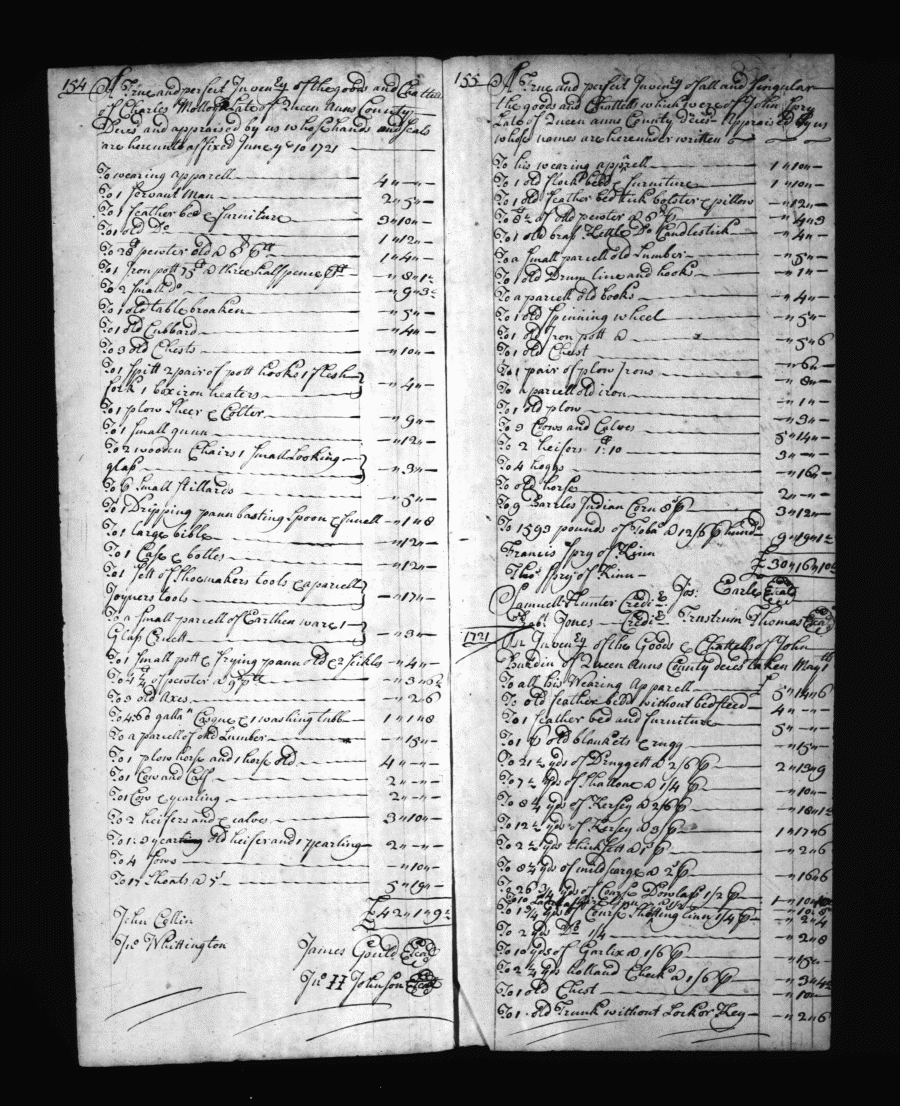 154 A True and perfect Inven:ty of the goods and Chattels
of Charles Mollock Late of Queen Anns County
Deces and appraised by us whose hands and seals
are hereunto affixed June ye 10 1721
To wearing apparell 4 " — " —
To 1 servant Man 2 " 5 " —
To 1 feather bed & furniture 3 " 10 " —
To 1 old Do 1 " 12 " —
To 28 pewter old a 1 " 4 " —
To 1 Iron pott 75 a three half pence — " 8 "
To 2 small do — " 9 " 3
To 1 old table broaken — " 5 " —
To 1 old Cubbard — " 4 " —
To 3 old Chests — " 10 " —
To 1 spitt 2 pair of pott hooks 1 flesh
fork 1 box iron heaters — " 4 " —
To 1 plow sheer & Colter — " 9 " —
To 1 small gunn — " 12 " —
To 2 wooden Chairs 1 small Looking
glass — " 3 " —
To 6 small stillards — " 5 " —
To 1 Dripping pann basting spoon & funell — " 1 " 8
To 1 large bible — " 12 " —
To 1 Case & botles — " 12 " —
To 1 sett of shoemakers tools & a parcell
Joyners tools — " 17 " —
To a small parcell of Earthen ware 1
Glass Cruett — " 3 " —
To 1 small pott & frying pann old & 2 sickles — " 4 " —
To of pewter a 9 — " 3 "
To 3 old Axes — " 2 " 6
To 4: 60 galla Casque & 1 washing tubb 1 " 1 " 8
To a parcell of old Lumber — " 15 " —
To 1 plow horse and 1 horse old 4 " — " —
To 1 Cow and Calf 2 " — " —
To 1 Cow & yearling 2 " — " —
To 2 heifers and & calves 3 " 10 " —
To 1: 3 year old heifer and 1 yearling 2 " — " —
To 4 sows — " 10 " —
To 17 Shoats a 5
£ 42 " 1 " 9
John Collin
Jno Whittington James Gould Seal
Jno II Johnson Seal
155 A True and perfect Inven:ty of all and singular
the goods and Chattells which were of John Spry
Late of Queen anns County Deces Appraised by us
whose names are hereunder written
To his wearing apparell 1 " 10 " —
To 1 old flock bed & furniture 1 " 10 " —
To 1 old feather bed tick bolster & pillow — " 12 " —
To of old pewter a — " 4 " 9
To 1 old brass kettle Do Candlestick — " 4 " —
To a small parcell old Lumber — " 5 " —
To 1 old Drum line and hooks — " 1 " —
To a parcell old books — " 4 " —
To 1 old spinning wheel — " 5 " —
To 1 old Iron pott a — " 5 " 6
To 1 old Chest — " 6 " —
To 1 pair of plow Irons — " 8 " —
To a parcell old iron — " 1 " —
To 1 old plow — " 3 " —
To 3 Cows and Calves 5 " 14 " —
To 2 heifers 1: 10 3 " — " —
To 4 hoggs — " 16 " —
To old horse 2 " — " —
To 9 Barrles Indian Corn 8 3 " 12 " —
To 1593 pounds of Toba a 12/6 p hund 9 " 19 " 1
Francis Spry of Kinn £ 30 " 16 " 10
Thos Spry of Kinn
Samuell Hunter Credi:r Jos: Earle Seal
Robt Jones Credi:r Trustrum Thomas Seal
1721 An Inven:ty of the Goods & Chattells of John
Burdin of Queen Anns County deces taken May
To all his Wearing Apparell £ 5 " 14 " 6
To old feather beds without bedsteed 4 " — " —
To 1 feather bed and furniture 5 " — " —
To old blankets & rugg — " 15 " —
To 21 yds of Druggett a 2/6 p 2 " 13 " 9
To 7 yds of Shalloon a 1/4 p — " 10 " —
To 8 yds of Kersey a 2/6 p — " 18 " 1
To 12 yds of Kersey a 3/ p 1 " 17 " 6
To 2 yds thicksett a 1 p — " 2 " 6
To 8 yds of mild serge a 2 p — " 16 " 6
To 26 3/4 yds of Course Dowlass 1/2 p
To 1 3/4 yds of Course Sheeting linn 1/4 p — " 2 " 4
To 2 yds Do 1/4 — " 2 " 8
To 10 yds of Garlix a 1/6 p — " 15 " —
To 2 yds holland Check a 1/6 p — " 3 "
To 1 old Chest — " 10 " —
To 1 old Trunk without Lock or Key — " 2 " 6